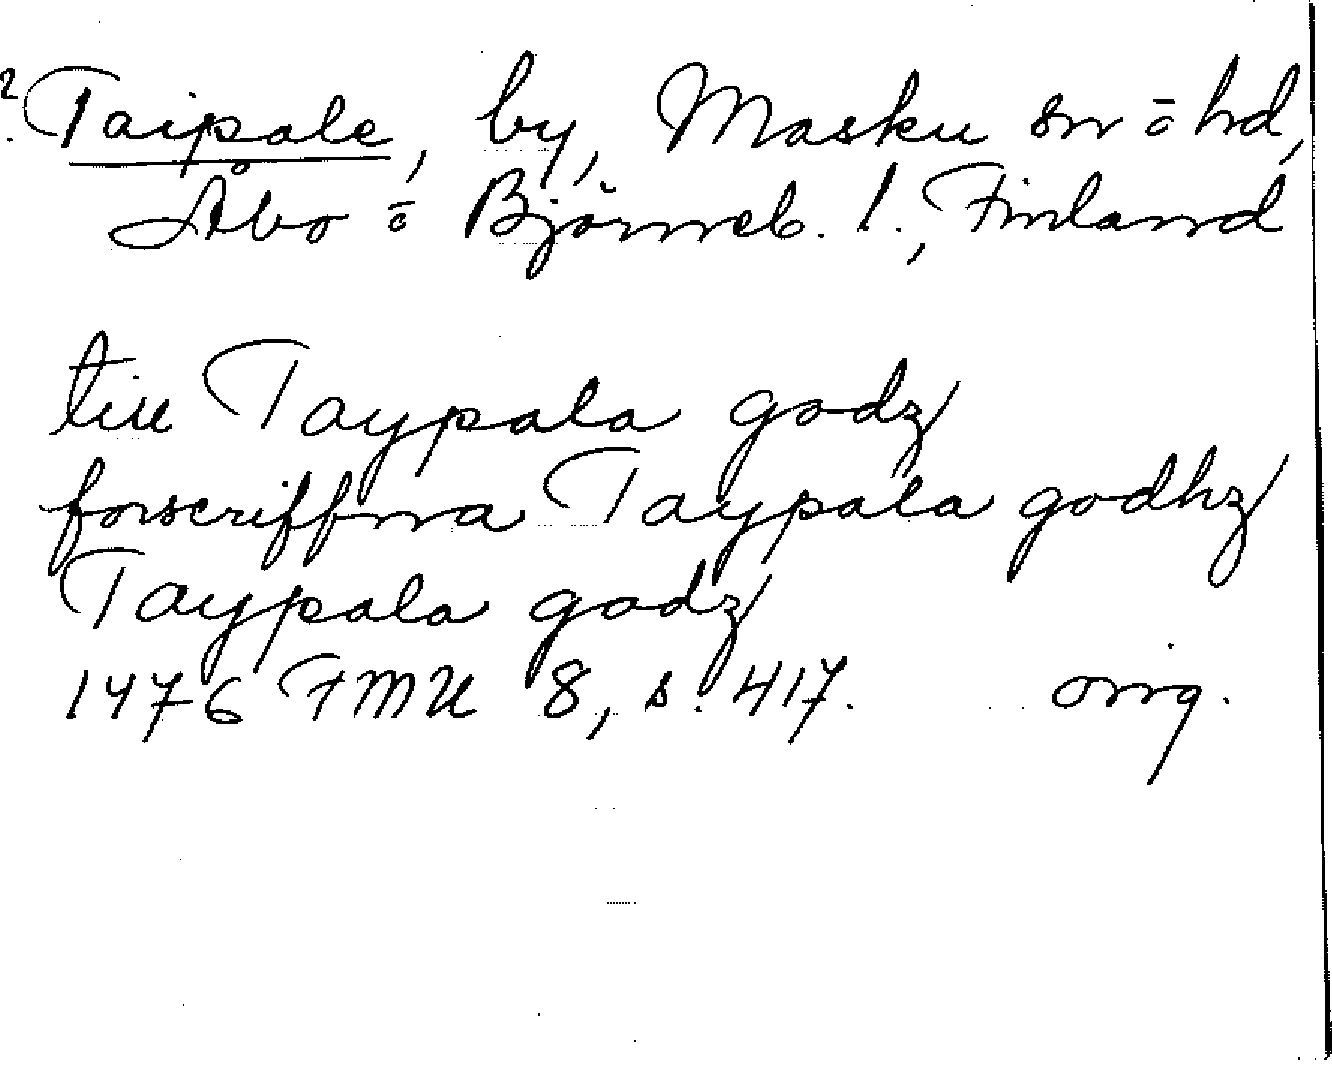 ? Taipale, by, Masku sn o hd,
Åbo o Björneb. l., Finland
till Taypala godz
forscriffna Taypala godhz
Taypala godz
1476 FMU 8, s. 417. orig.